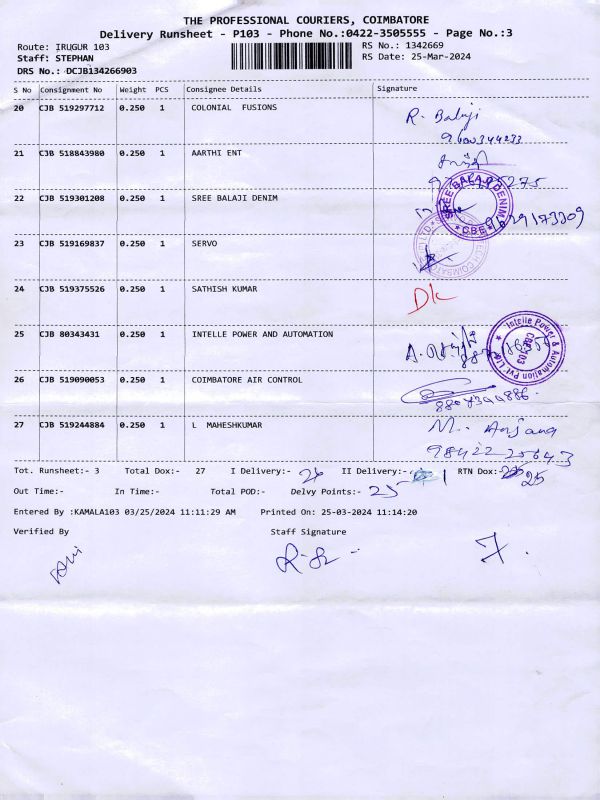 THE PROFESSIONAL COURIERS, COIMBATORE
Delivery Runsheet - P103 - Phone No.:0422-3505555 - Page No.:3
Route: IRUGUR 103
RS No.: 1342669
Staff: STEPHAN
RS Date: 25-Mar-2024
DRS No.: DCJB134266903
S No Consignment No Weight PCS Consignee Details Signature
20 CJB 519297712 0.250 1 COLONIAL FUSIONS R. Balaji
9600344233
21 CJB 518843980 0.250 1 AARTHI ENT
22 CJB 519301208 0.250 1 SREE BALAJI DENIM
SREE BALAJI DENIM * CBE *
9629173309
23 CJB 519169837 0.250 1 SERVO
24 CJB 519375526 0.250 1 SATHISH KUMAR
25 CJB 80343431 0.250 1 INTELLE POWER AND AUTOMATION
Intelle Power & Automation Pvt Ltd
26 CJB 519090053 0.250 1 COIMBATORE AIR CONTROL
27 CJB 519244884 0.250 1 L MAHESHKUMAR
Tot. Runsheet:- 3 Total Dox:- 27 I Delivery:- 26 II Delivery:- 1 RTN Dox:- 25
Out Time:- In Time:- Total POD:- Delvy Points:- 25
Entered By :KAMALA103 03/25/2024 11:11:29 AM Printed On: 25-03-2024 11:14:20
Verified By Staff Signature